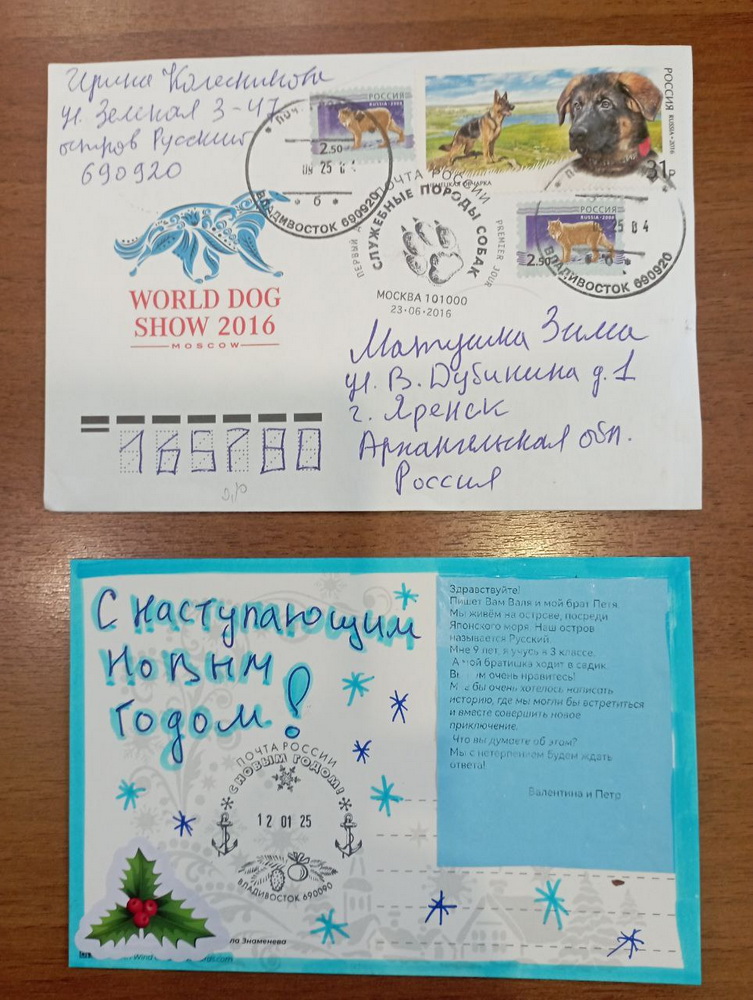 Ирина Колесникова
ул. Зелёная 3-47
остров Русский
690920
РОССИЯ
RUSSIA
2.50
ВЛАДИВОСТОК 690920
б
РОССИЯ
RUSSIA • 2016
31р
ОВЧАРКА
РОССИЯ
RUSSIA
2.50
25 04
ВЛАДИВОСТОК 690920
ПОЧТА РОССИИ
СЛУЖЕБНЫЕ ПОРОДЫ СОБАК
ПЕРВЫЙ
PREMIER JOUR
МОСКВА 101000
23•06•2016
WORLD DOG
SHOW 2016
MOSCOW
Матушка Зима
ул. В. Дубинина д. 1
г. Яренск
Архангельская обл.
Россия
165780
С наступающим
Новым
годом!
ПОЧТА РОССИИ
С НОВЫМ ГОДОМ!
12 01 25
ВЛАДИВОСТОК 690090
Знаменева
Здравствуйте!
Пишет Вам Валя и мой брат Петя.
Мы живём на острове, посреди
Японского моря. Наш остров
называется Русский.
Мне 9 лет, я учусь в 3 классе.
А мой братишка ходит в садик.
очень нравитесь!
бы очень хотелось написать
историю, где мы могли бы встретиться
и вместе совершить новое
приключение.
Что вы думаете об этом?
Мы с нетерпением будем ждать
ответа!
Валентина и Петр